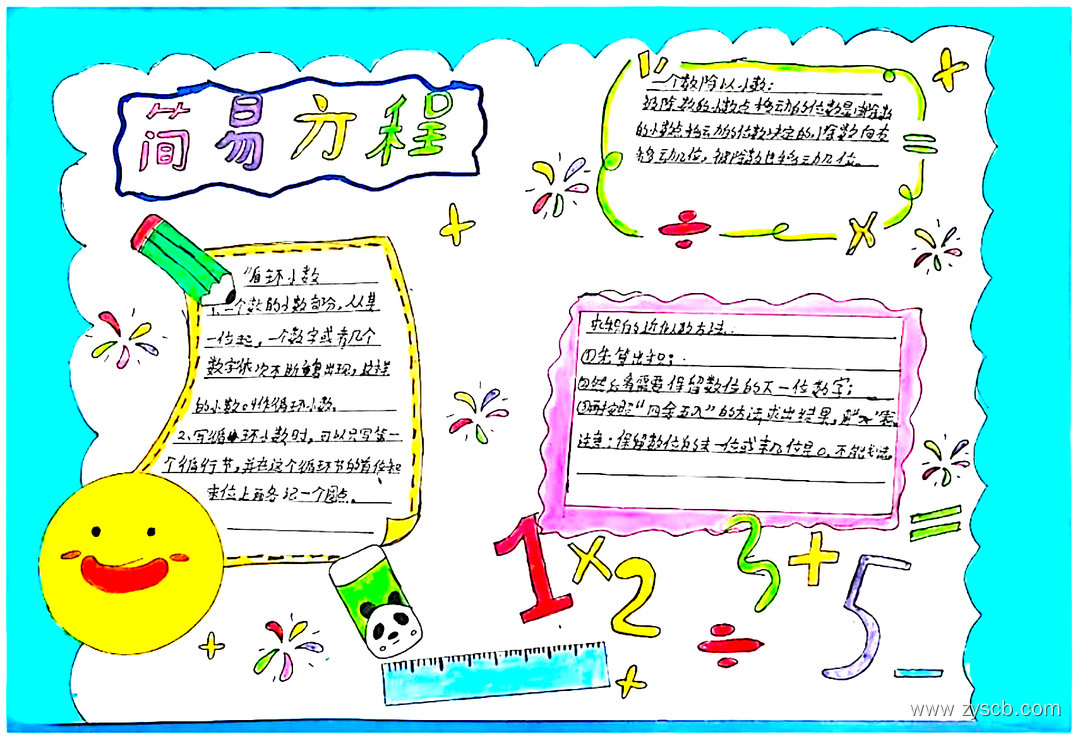 简易方程
一个数除以小数:
的小数点移动的位数
移动几位,被除数也移动几位。
循环小数
1、一个数的小数部分,从某
一位起,一个数字或者几个
数字依次不断重复出现,这样
的小数叫作循环小数。
2、写循环小数时,可以只写第一
个循环节,并在这个循环节的首位和
末位上面各记一个圆点。
求积的近似数方法:
①先算出积;
②然后看需要保留数位的下一位数字;
③再按照"四舍五入"的方法求出结果,
注意:保留数位的末一位或末几位是0,不能
1×2
3+5
www.zyscb.com